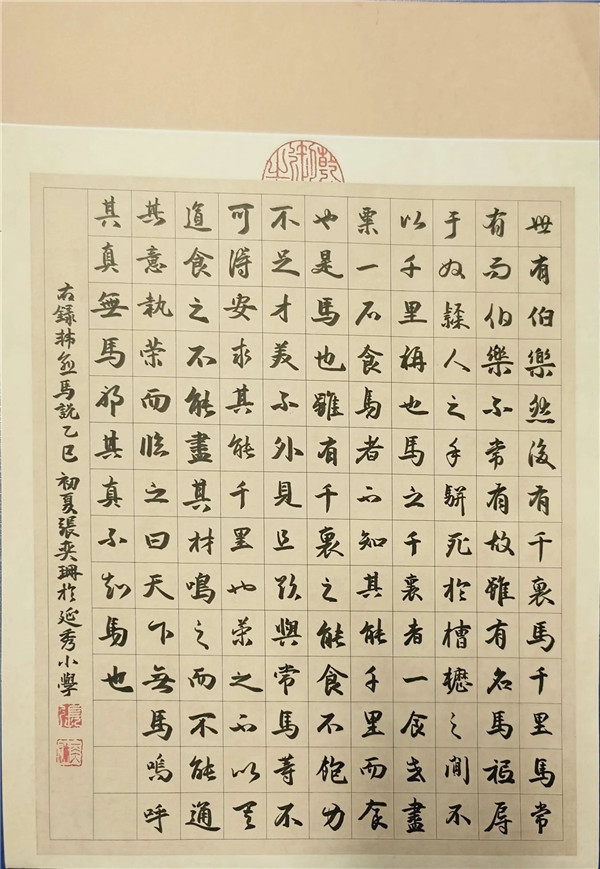 世有伯樂然後有千裏馬千里馬常
有而伯樂不常有故雖有名馬祗辱
于奴隸人之手駢死於槽櫪之間不
以千里稱也馬之千裏者一食或盡
粟一石食馬者不知其能千里而食
也是馬也雖有千裏之能食不飽力
不足才美不外見且欲與常馬等不
可得安求其能千里也策之不以其
道食之不能盡其材鳴之而不能通
其意執策而臨之曰天下無馬嗚呼
其真無馬邪其真不知馬也
右錄韩愈馬說乙巳初夏張奕珊於延秀小學